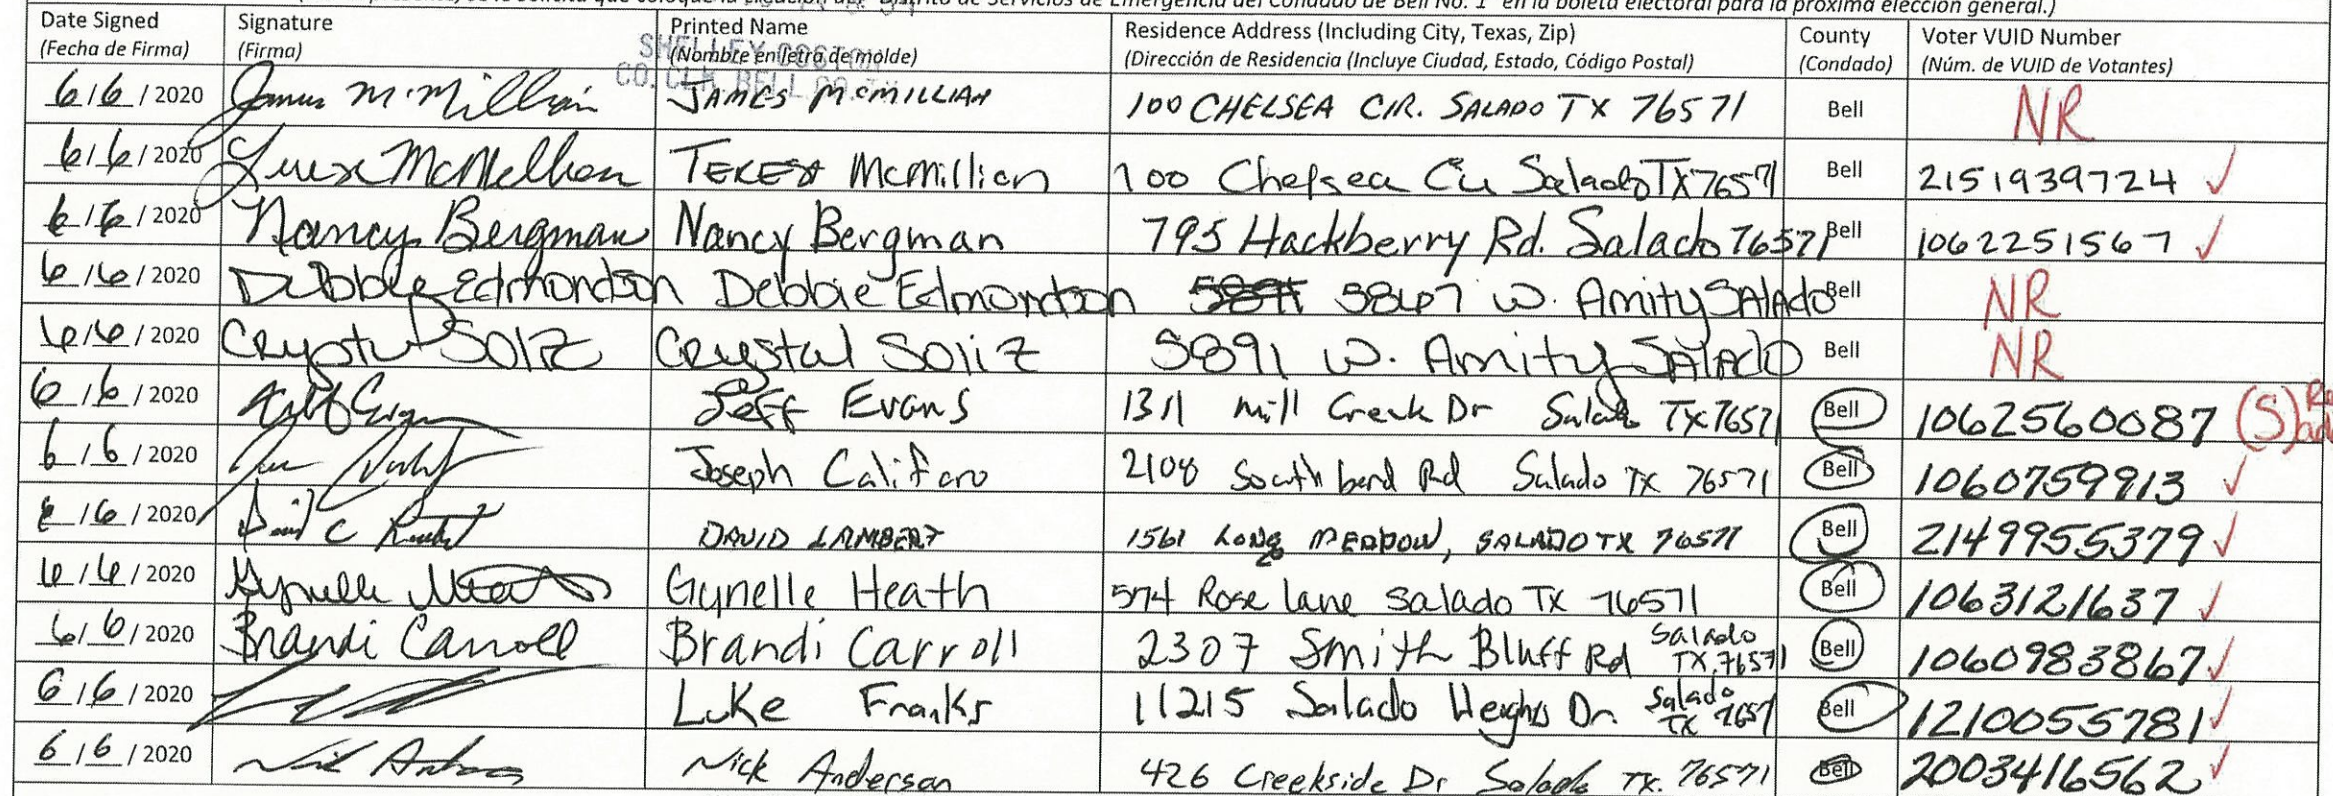 Distrito de Servicios de Emergencia del Condado de Bell No. 1" en la boleta electoral para la próxima elección general.)
Date Signed Signature Printed Name Residence Address (Including City, Texas, Zip) County Voter VUID Number
(Fecha de Firma) (Firma) (Nombre en letra de molde) (Dirección de Residencia (Incluye Ciudad, Estado, Código Postal) (Condado) (Núm. de VUID de Votantes)
SHELLEY COSTON
CO. CLK. BELL CO. TX
6/6/2020 James McMillian JAMES McMILLIAN 100 CHELSEA CIR. SALADO TX 76571 Bell NR
6/6/2020 Teresa McMillian TERESA McMillian 100 Chelsea Cir Salado TX 76571 Bell 2151939724 ✓
6/6/2020 Nancy Bergman Nancy Bergman 795 Hackberry Rd. Salado 76571 Bell 1062251567 ✓
6/6/2020 Debbie Edmondson Debbie Edmondson 5867 W. Amity SALADO Bell NR
6/6/2020 Crystal Soliz Crystal Soliz 5891 W. Amity SALADO Bell NR
6/6/2020 Jeff Evans 1311 Mill Creek Dr Salado TX 76571 Bell 1062560087 (S)
6/6/2020 Joseph Califero 2108 South bend Rd Salado TX 76571 Bell 1060759913 ✓
6/6/2020 David C Lambert DAVID LAMBERT 1561 LONG MEADOW, SALADO TX 76571 Bell 2149955379 ✓
6/6/2020 Gynelle Heath Gynelle Heath 574 Rose lane Salado TX 76571 Bell 1063121637 ✓
6/6/2020 Brandi Carroll Brandi Carroll 2307 Smith Bluff Rd Salado TX, 76571 Bell 1060983867 ✓
6/6/2020 Luke Franks 11215 Salado Heights Dr. Salado TX 7657 Bell 1210055781 ✓
6/6/2020 Nick Anderson 426 Creekside Dr Salado TX. 76571 Bell 2003416562 ✓